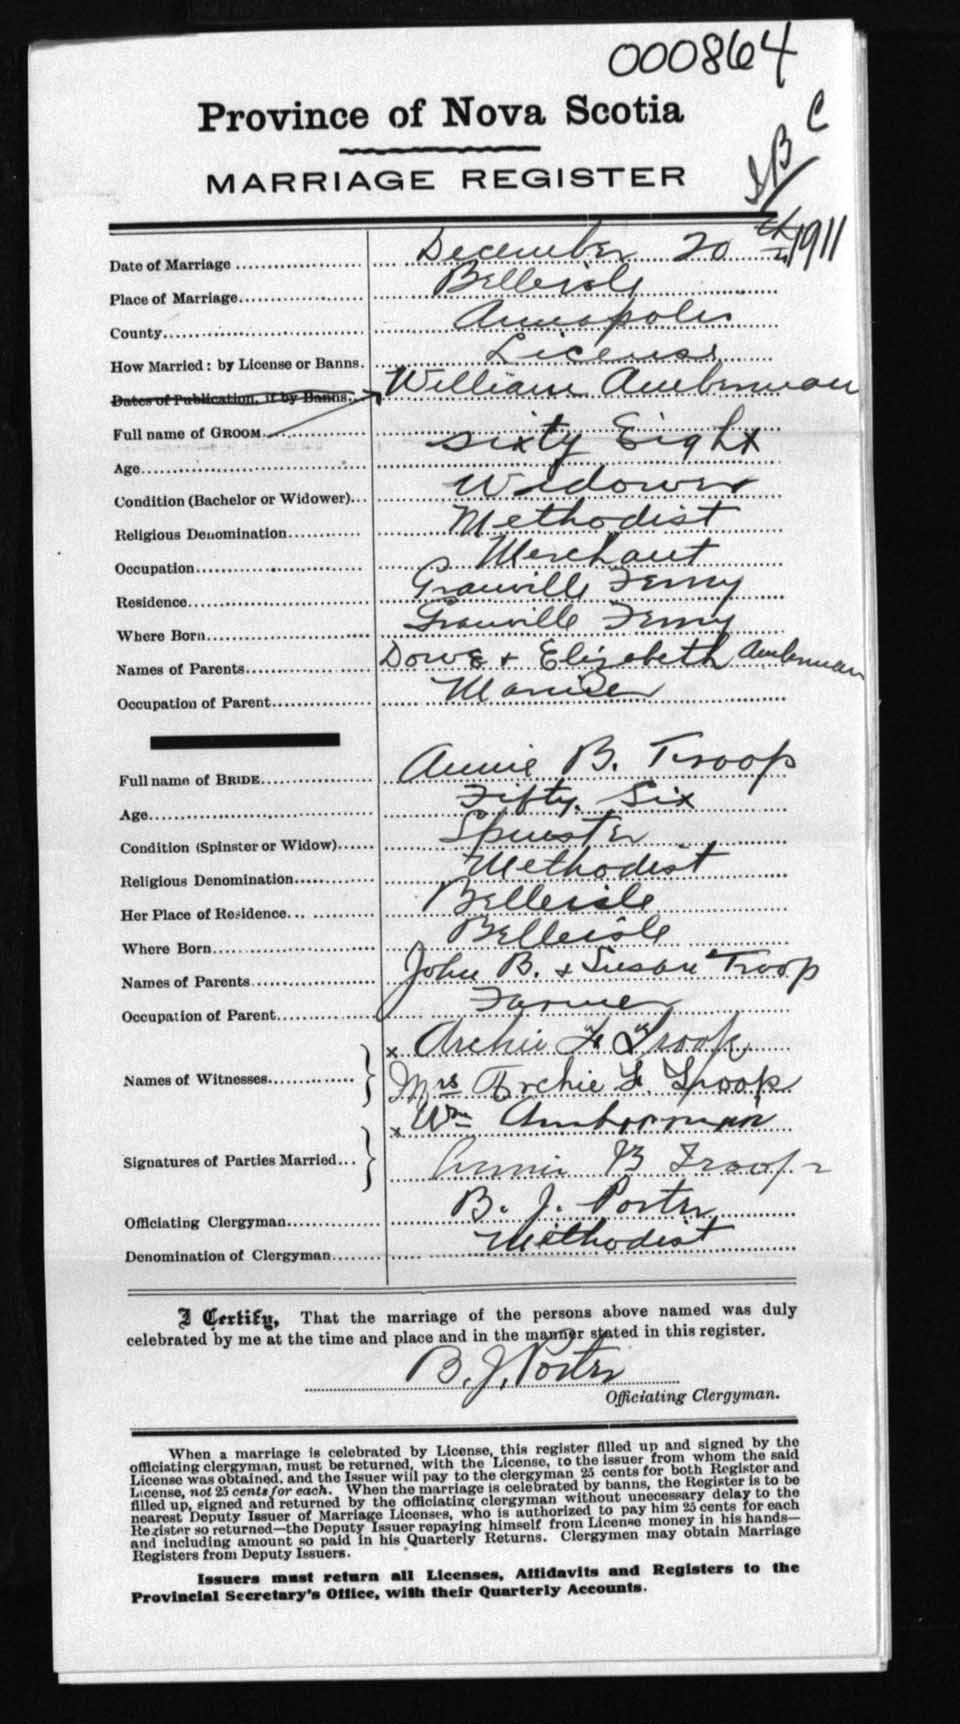 000864
Province of Nova Scotia
MARRIAGE REGISTER
Date of Marriage December 20th 1911
Place of Marriage Belleisle
County Annapolis
How Married: by License or Banns. License
Dates of Publication, if by Banns. William Amberman
Full name of GROOM
Age sixty Eight
Condition (Bachelor or Widower) Widower
Religious Denomination Methodist
Occupation Merchant
Residence Granville Ferry
Where Born Granville Ferry
Names of Parents Dowe + Elizebeth Amberman
Occupation of Parent Mariner
Full name of BRIDE Annie B. Troop
Age Fifty Six
Condition (Spinster or Widow) Spinster
Religious Denomination Methodist
Her Place of Residence Belleisle
Where Born Belleisle
Names of Parents John B. + Susan Troop
Occupation of Parent Farmer
x Archie F. Troop
Names of Witnesses Mrs Archie F. Troop
x Wm Amberman
Signatures of Parties Married Annie B Troop
Officiating Clergyman B. J. Porter
Denomination of Clergyman Methodist
I Certify, That the marriage of the persons above named was duly
celebrated by me at the time and place and in the manner stated in this register.
B. J. Porter
Officiating Clergyman.
When a marriage is celebrated by License, this register filled up and signed by the
officiating clergyman, must be returned, with the License, to the issuer from whom the said
License was obtained, and the Issuer will pay to the clergyman 25 cents for both Register and
License, not 25 cents for each. When the marriage is celebrated by banns, the Register is to be
filled up, signed and returned by the officiating clergyman without unnecessary delay to the
nearest Deputy Issuer of Marriage Licenses, who is authorized to pay him 25 cents for each
Register so returned—the Deputy Issuer repaying himself from License money in his hands—
and including amount so paid in his Quarterly Returns. Clergymen may obtain Marriage
Registers from Deputy Issuers.
Issuers must return all Licenses, Affidavits and Registers to the
Provincial Secretary's Office, with their Quarterly Accounts.